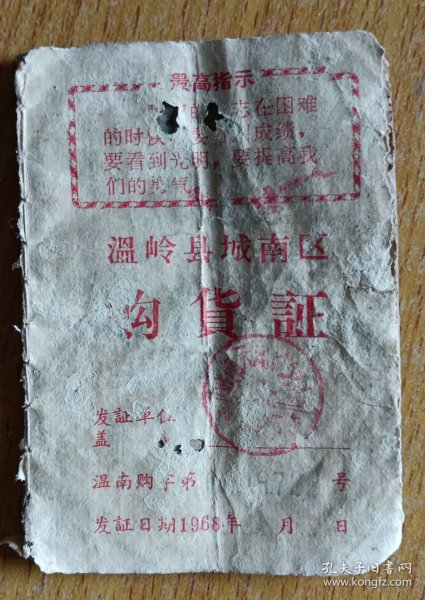 最高指示
志在困难
的时候 要 成绩，
要看到光明，要提高我
们的勇气
溫岭县城南区
购貨証
发証单位
盖
温南购字第 972 号
发証日期1968年 月 日
孔夫子旧书网
www.kongfz.com